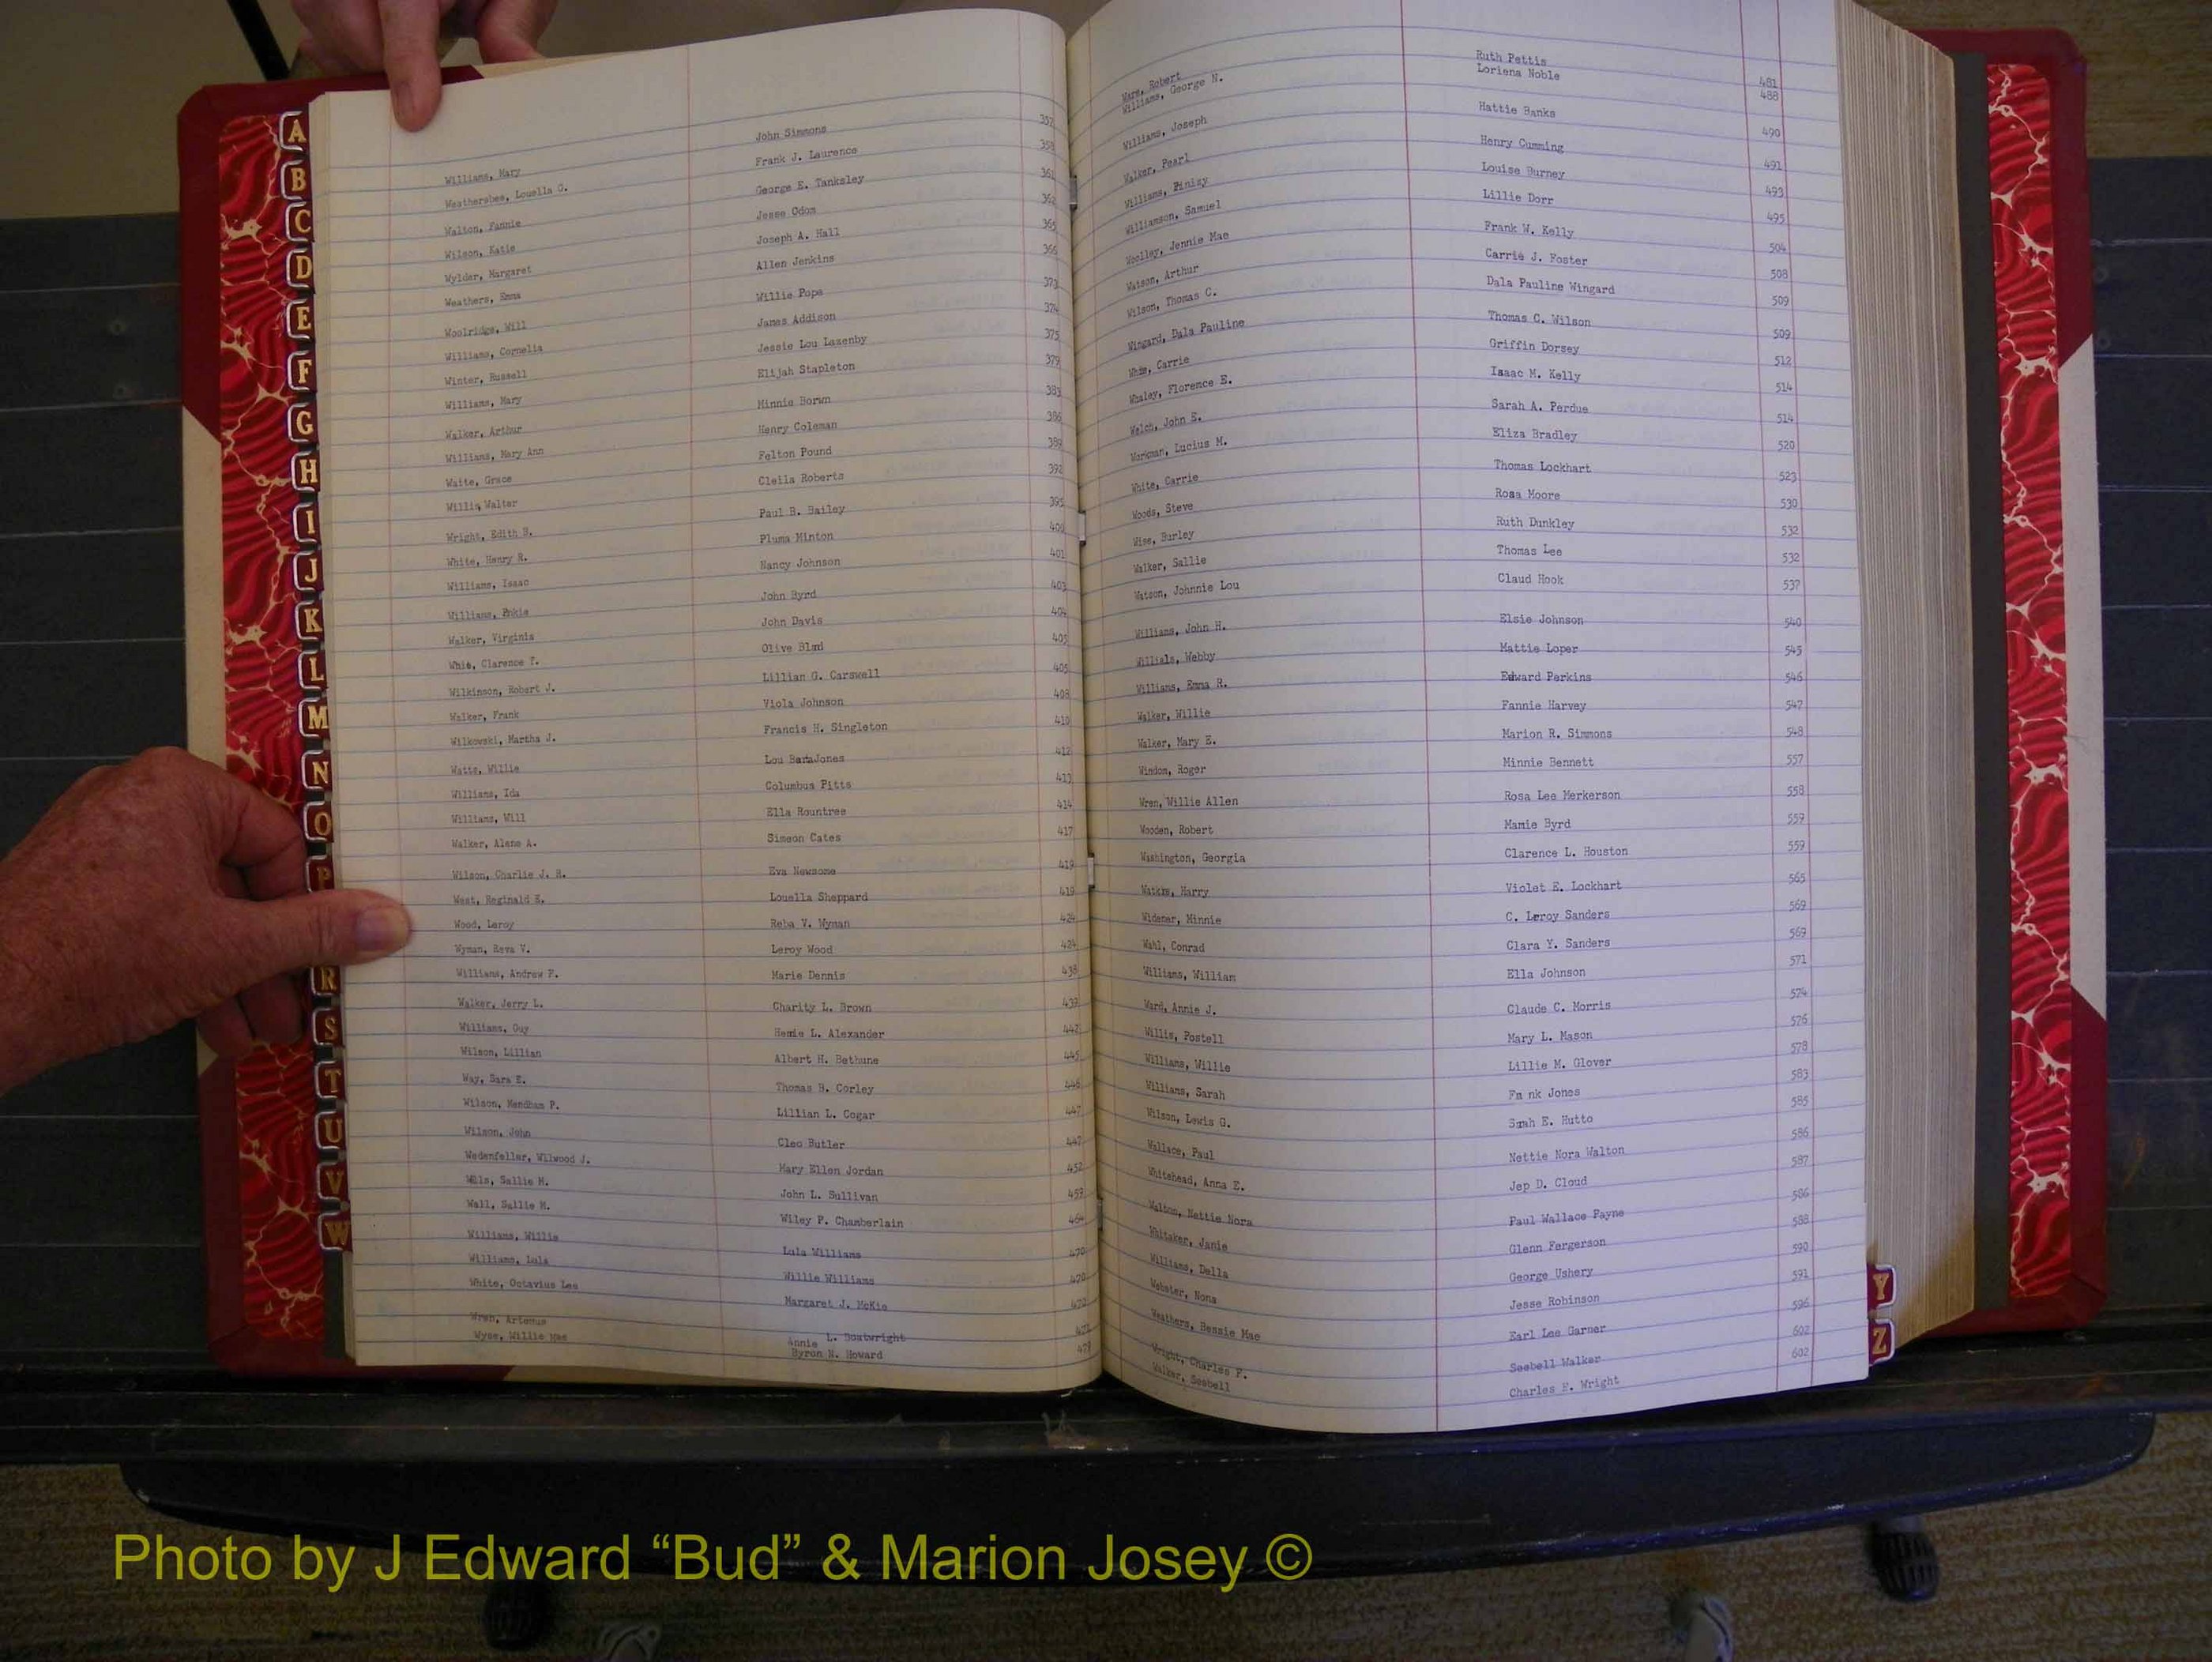 A
B
C
D
E
F
G
H
I
J
K
L
M
N
O
P
R
S
T
U
V
W
Williams, Mary John Simmons 357
Weathersbee, Louella G. Frank J. Laurence 358
Walton, Fannie George E. Tanksley 361
Wilson, Katie Jesse Odom 362
Wylder, Margaret Joseph A. Hall 365
Weathers, Emma Allen Jenkins 366
Woolridge, Will Willie Pope 373
Williams, Cornelia James Addison 374
Winter, Russell Jessie Lou Lazenby 375
Williams, Mary Elijah Stapleton 379
Walker, Arthur Minnie Borum 383
Williams, Mary Ann Henry Coleman 386
Waite, Grace Felton Pound 389
Willis, Walter Cleila Roberts 392
Wright, Edith S. Paul B. Bailey 395
White, Henry R. Pluma Minton 400
Williams, Isaac Nancy Johnson 401
Williams, John Byrd 403
Walker, Virginia John Davis 404
White, Clarence T. Olive 405
Wilkinson, Robert J. Lillian G. Carswell 405
Walker, Frank Viola Johnson 408
Wilkowski, Martha J. Francis H. Singleton 410
Watts, Willie Lou Jones 412
Williams, Ida Columbus Pitts 413
Williams, Will Ella Rountree 414
Walker, Alene A. Simeon Cates 417
Wilson, Charlie J. R. Eva Newsome 419
West, Reginald E. Louella Sheppard 419
Wood, Leroy Reba V. Wyman 424
Wyman, Reva V. Leroy Wood 424
Williams, Andrew F. Marie Dennis 438
Walker, Jerry L. Charity L. Brown 439
Williams, Guy L. Alexander 442
Wilson, Lillian Albert H. Bethune 445
Way, Sara E. Thomas B. Corley 446
Wilson, Mendham P. Lillian L. Cogar 447
Wilson, John Cleo Butler 447
Wedenfeller, Wilwood J. Mary Ellen Jordan 452
Sallie M. John L. Sullivan 459
Wall, Sallie M. Wiley P. Chamberlain 464
Williams, Willie Lula Williams 470
Williams, Lula Willie Williams 470
White, Octavius Lee Margaret J. McKie 470
Wren, Artemus Annie L. Boatwright
Wyse, Willie Mae Byron N. Howard
Ware, Robert Ruth Pettis 481
Williams, George N. Loriena Noble 488
Williams, Joseph Hattie Banks 490
Walker, Pearl Henry Cumming 491
Williams, Pinizy Louise Burney 493
Williamson, Samuel Lillie Dorr 495
Woolley, Jennie Mae Frank W. Kelly 504
Watson, Arthur Carrie J. Foster 508
Wilson, Thomas C. Dala Pauline Wingard 509
Wingard, Dala Pauline Thomas C. Wilson 509
White, Carrie Griffin Dorsey 512
Whaley, Florence E. Isaac M. Kelly 514
Welch, John E. Sarah A. Perdue 514
Workman, Lucius M. Eliza Bradley 520
White, Carrie Thomas Lockhart 523
Woods, Steve Rosa Moore 530
Wise, Burley Ruth Dunkley 532
Walker, Sallie Thomas Lee 532
Watson, Johnnie Lou Claud Hook 537
Williams, John H. Elsie Johnson 540
Willials, Webby Mattie Loper 545
Williams, Emma R. Edward Perkins 546
Walker, Willie Fannie Harvey 547
Walker, Mary E. Marion R. Simmons 548
Windom, Roger Minnie Bennett 557
Wren, Willie Allen Rosa Lee Merkerson 558
Wooden, Robert Mamie Byrd 559
Washington, Georgia Clarence L. Houston 559
Watkins, Harry Violet E. Lockhart 565
Widener, Minnie C. Leroy Sanders 569
Wahl, Conrad Clara Y. Sanders 569
Williams, William Ella Johnson 571
Ward, Annie J. Claude C. Morris 574
Willis, Postell Mary L. Mason 576
Williams, Willie Lillie M. Glover 578
Williams, Sarah Fa nk Jones 583
Wilson, Lewis G. Sarah E. Hutto 585
Wallace, Paul Nettie Nora Walton 586
Whitehead, Anna E. Jep D. Cloud 587
Walton, Nettie Nora Paul Wallace Payne 586
Whitaker, Janie Glenn Fergerson 588
Williams, Della George Ushery 590
Webster, Nona Jesse Robinson 591
Weathers, Bessie Mae Earl Lee Garner 596
Wright, Charles F. Seebell Walker 602
Walker, Seebell Charles E. Wright 602
Y
Z
Photo by J Edward “Bud” & Marion Josey ©